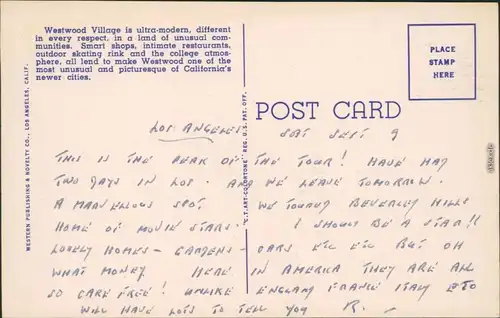 Westwood Village is ultra-modern, different
in every respect, in a land of unusual com-
munities. Smart shops, intimate restaurants,
outdoor skating rink and the college atmos-
phere, all lend to make Westwood one of the
most unusual and picturesque of California's
newer cities.
PLACE
STAMP
HERE
WESTERN PUBLISHING & NOVELTY CO., LOS ANGELES, CALIF.
"C.T. ART-COLORTONE" REG. U.S. PAT. OFF.
POST CARD
LOS ANGELES SAT SEPT 9
THIS IS THE PEAK OF THE TOUR! HAVE HAD
TWO DAYS IN LOS. AND WE LEAVE TOMORROW.
A MARVELLOUS SPOT WE TOURED BEVERLEY HILLS
HOME OF MOVIE STARS. I SHOULD BE A STAR!!
LOVELY HOMES - GARDENS - CARS ETC ETC BUT OH
WHAT MONEY HERE IN AMERICA THEY ARE ALL
SO CARE FREE! UNLIKE ENGLAND FRANCE ITALY ETC
WILL HAVE LOTS TO TELL YOU R. -